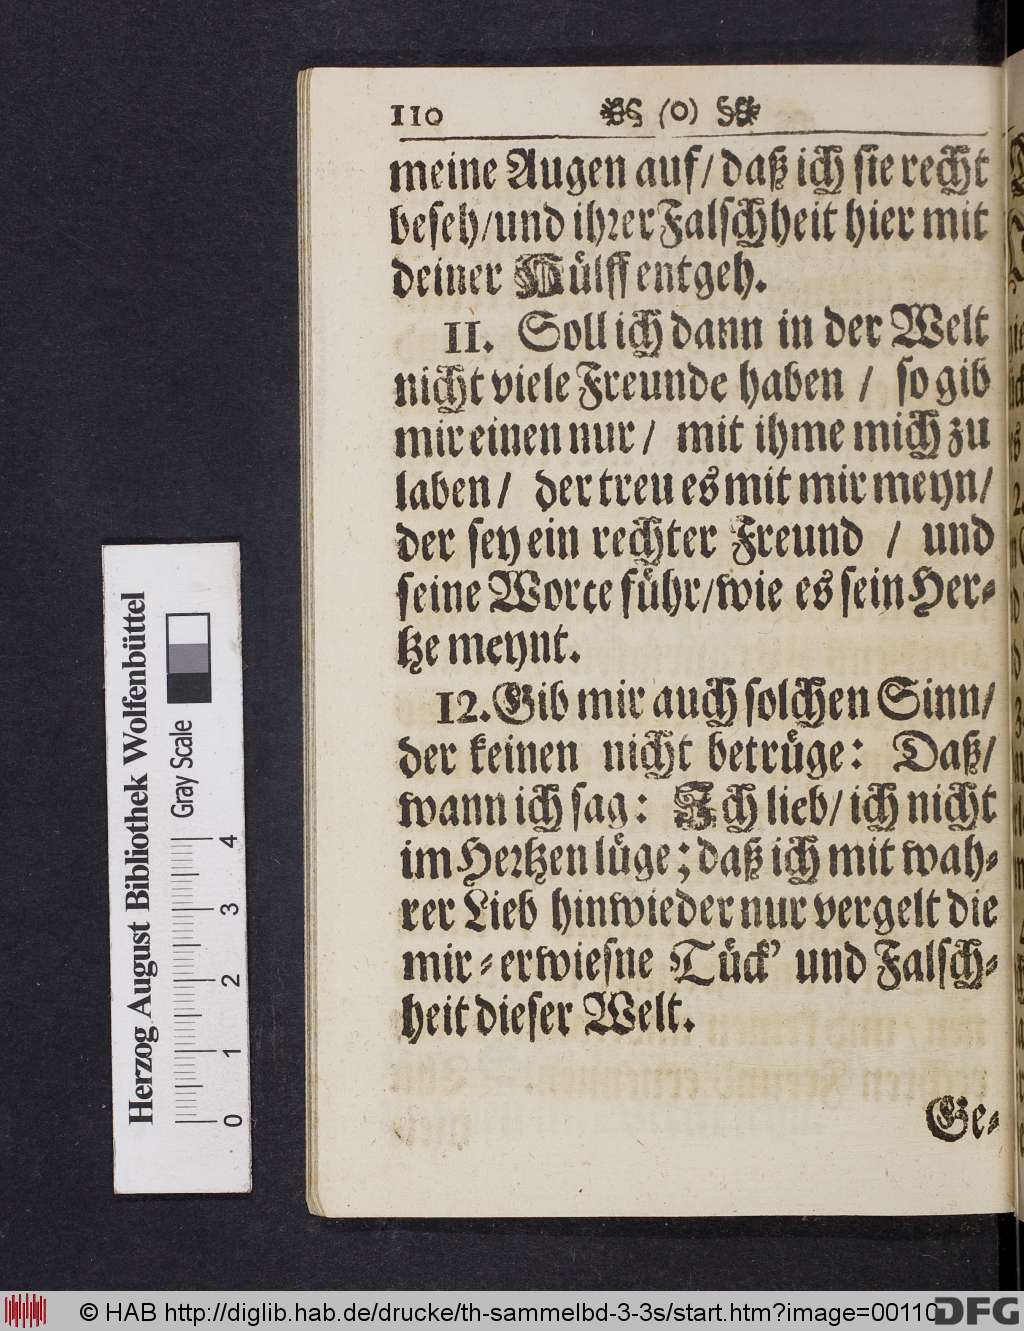 110 (o)
meine Augen auf/ daß ich sie recht
beseh/und ihrer Falschheit hier mit
deiner Hülff entgeh.
11. Soll ich dann in der Welt
nicht viele Freunde haben / so gib
mir einen nur/ mit ihme mich zu
laben/ der treu es mit mir meyn/
der sey ein rechter Freund / und
seine Worte führ/wie es sein Her-
tze meynt.
12. Gib mir auch solchen Sinn/
der keinen nicht betrüge: Daß/
wann ich sag: Ich lieb/ ich nicht
im Hertzen lüge; daß ich mit wah-
rer Lieb hinwieder nur vergelt die
mir-erwiesne Tück' und Falsch-
heit dieser Welt.
Ge-
Herzog August Bibliothek Wolfenbüttel
Gray Scale
0 1 2 3 4
© HAB http://diglib.hab.de/drucke/th-sammelbd-3-3s/start.htm?image=00110
DFG